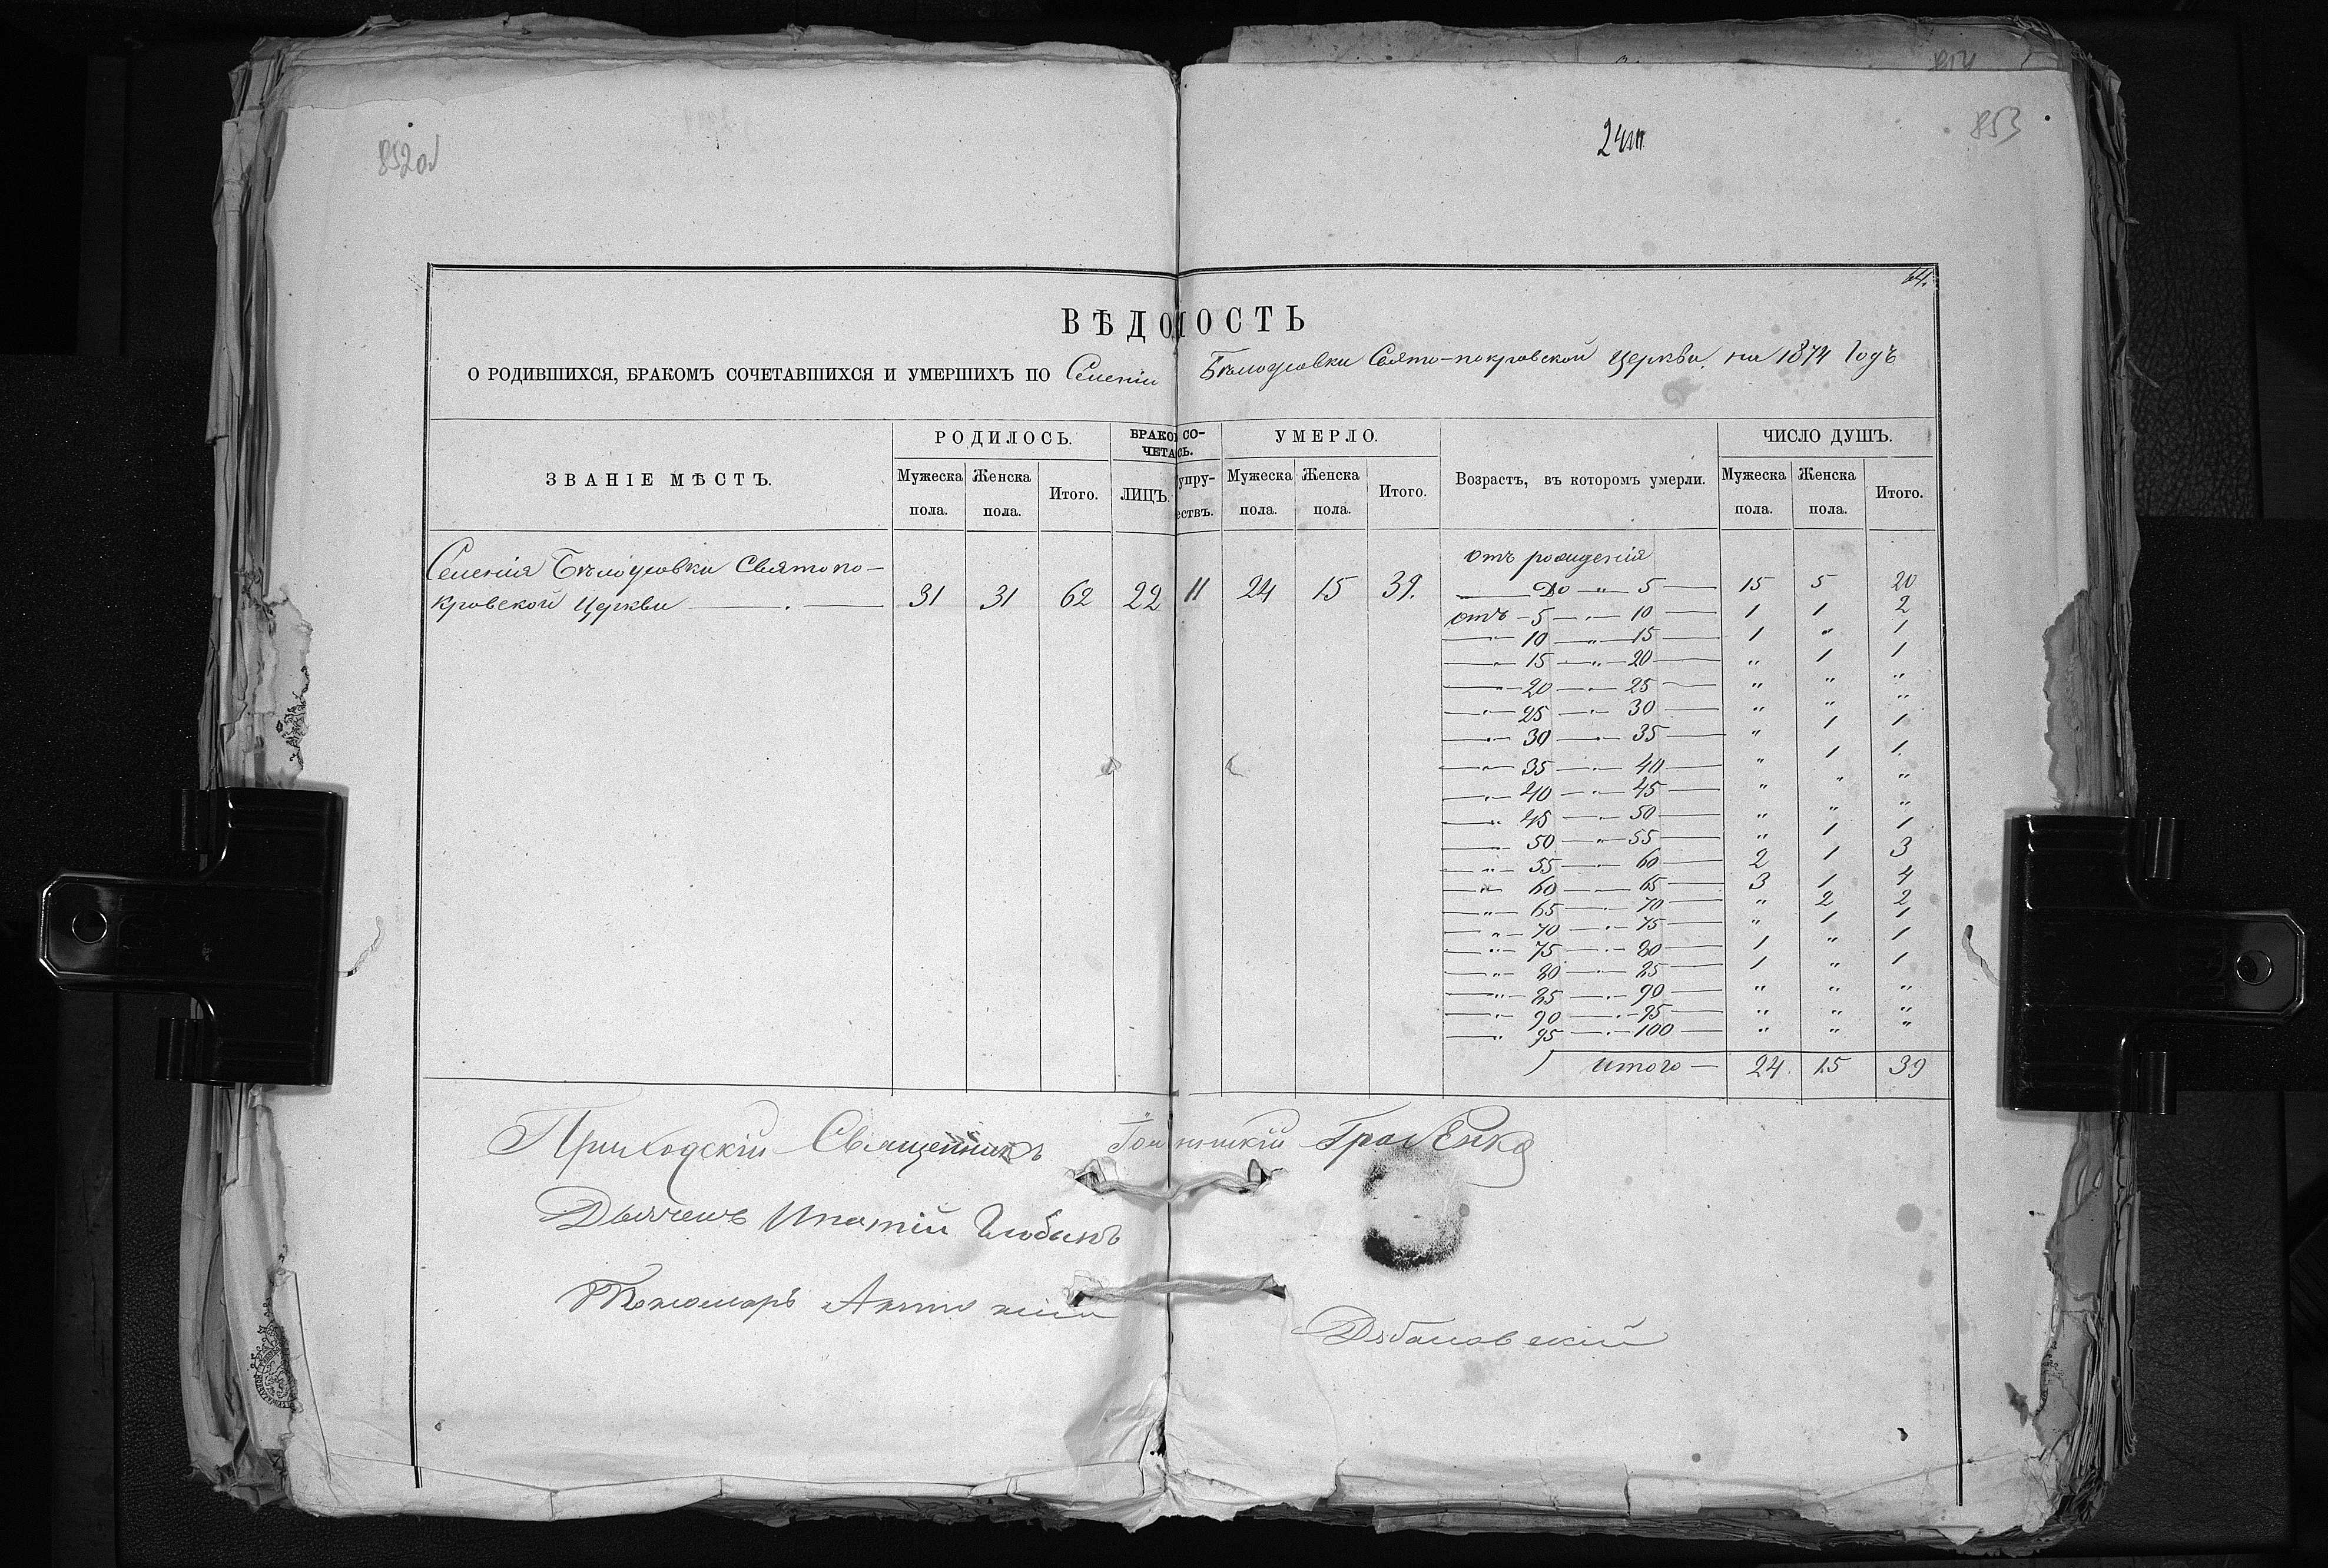 852об
853
854
24
64.
ВѢДОМОСТЬ
О РОДИВШИХСЯ, БРАКОМЪ СОЧЕТАВШИХСЯ И УМЕРШИХЪ ПО Селенію Бѣлоусовки Свято-покровской Церкви на 1874 Годъ
ЗВАНІЕ МѢСТЪ.
РОДИЛОСЬ.
БРАКОМ СО-
ЧЕТАСЬ.
УМЕРЛО.
Возрастъ, въ которомъ умерли.
ЧИСЛО ДУШЪ.
Мужеска пола.
Женска пола.
Итого.
ЛИЦЪ.
упру-
ествъ.
Мужеска пола.
Женска пола.
Итого.
Мужеска пола.
Женска пола.
Итого.
Селенія Бѣлоусовки Святопо-
кровской Церкви — 31 31 62 22 11 24 15 39.
отъ рожденія
До " 5 — 15 5 20
отъ 5 — 10 — 1 1 2
" 10 " 15 — 1 " 1
" 15 " 20 — " 1 1
" 20 — 25 — " " "
" 25 — 30 — " " "
" 30 — 35 — " 1 1
" 35 — 40 — " 1 1.
" 40 — 45 — " " "
" 45 — 50 — " " "
50 " 55 — " 1 1
" 55 — 60 — 2 1 3
" 60 — 65 — 3 1 4
" 65 — 70 — " 2 2
" 70 — 75 — " 1 1
" 75 — 80 — 1 " 1
" 80 — 85 — 1 " 1
" 85 — 90 — " " "
" 90 — 95 — " " "
" 95 — 100 — " " "
Итого — 24. 15 39
Приходскій Священникъ
Дьячекъ Ипатій
Пономарь